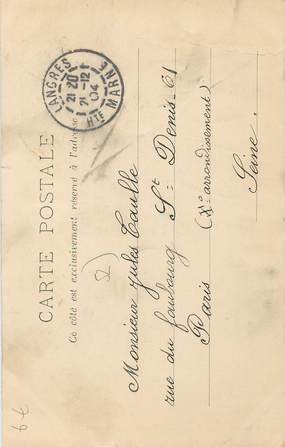 CARTE POSTALE
Ce côté est exclusivement réservé à l'adresse
LANGRES
21 20
21-12
04
HTE MARNE
2
Monsieur Jules Caulle
rue du faubourg St Denis 61
Paris
(Xe arrondissement)
Seine.